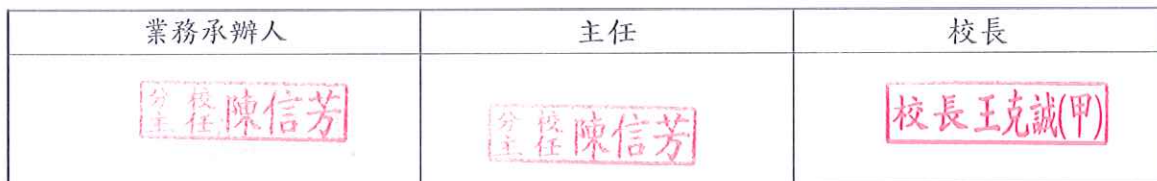 業務承辦人 主任 校長
分校主任 陳信芳 分校主任 陳信芳 校長王克誠(甲)